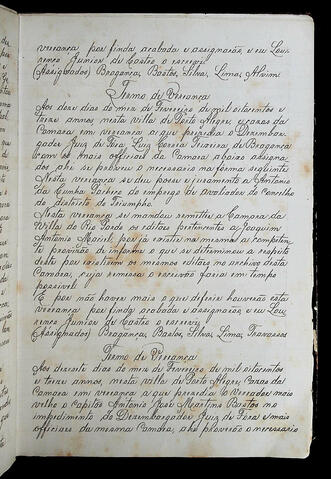 vereança por finda acabada e assignarão, e eu Lou
renço Junior de Castro o escrevi
(Assignados) Bragança, Bastos, Silva, Lima, Alvim
Termo de Vereança
Aos doze dias do mez de Fevereiro de mil oitocentos e
treze annos, nesta villa de Porto Alegre, e cazas da
Camara em vereança a que prezidio o Dezembar-
gador Juiz de Fora Luiz Corrêa Teixeira de Bragança
com os mais officiaes da Camara abaixo assigna
dos ahi se proveu o necessario na forma seguinte
Nesta vereança se deu posse e juramento a Antonio
da Cunha Pacheco do emprego de avaliador do Conselho
do districto de Triumpho.
Nesta vereança se mandou remetter a Camara da
Villa do Rio Pardo os editaes pertencentes a Joaquim
Antonio Maciel, por já existir na mesma a competen
te provisão de informe o que se determinou a respeito
deste por existirem os mesmos editaes no archivo desta
Camara, cuja remessa o escrivão faria em tempo
possivel.
E por não haver mais o que deferir houverão esta
vereança por finda, acabada e assignarão, e eu Lou
renço Junior de Castro o escrevi
(Assignados) Bragança, Bastos, Silva, Lima, Travassos
Termo de Vereança
Aos dezesete dias do mez de Fevereiro, de mil oitocentos
e treze annos, nesta villa de Porto Alegre, Cazas da
Camara em vereança a que prezidio o Vereador mais
velho o capitão Antonio José Martins Bastos no
impedimento do Dezembargador Juiz de Fora e mais
officiaes da mesma Camara, ahi proverão o necessario